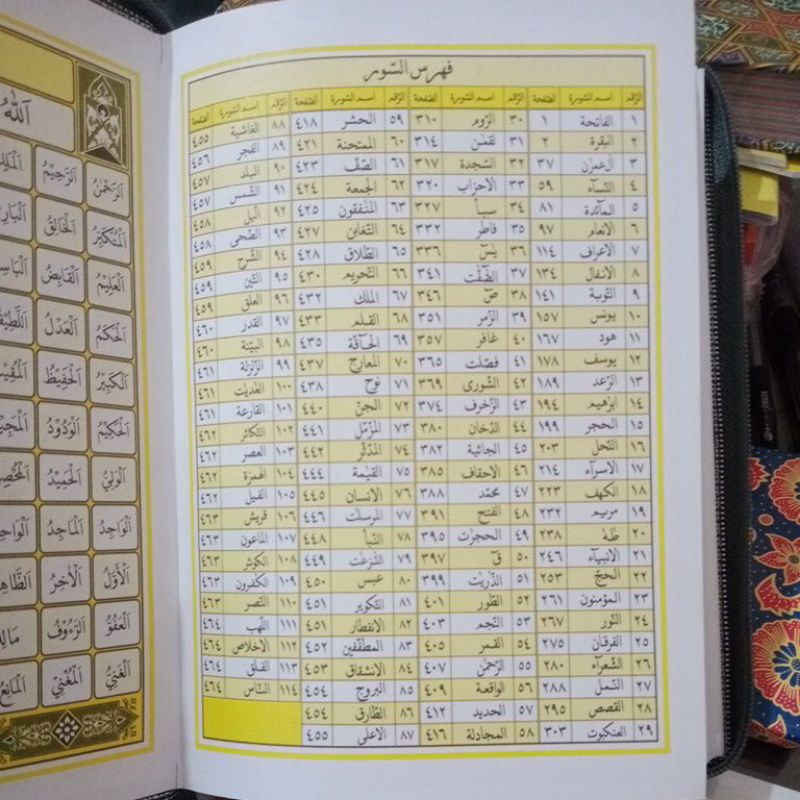 فهرس السّور
الرّقم اسم السّورة الصّفحة الرّقم اسم السّورة الصّفحة الرّقم اسم السّورة الصّفحة الرّقم اسم السّورة الصّفحة
١ الفاتحة ١ ٣٠ الرّوم ٣١٠ ٥٩ الحشر ٤١٨ ٨٨ الغاشية ٤٥٥
٢ البقرة ٢ ٣١ لقمٰن ٣١٤ ٦٠ الممتحنة ٤٢١ ٨٩ الفجر ٤٥٦
٣ اٰل عمرٰن ٣٧ ٣٢ السّجدة ٣١٧ ٦١ الصّفّ ٤٢٣ ٩٠ البلد ٤٥٧
٤ النّسآء ٥٩ ٣٣ الاحزاب ٣٢٠ ٦٢ الجمعة ٤٢٤ ٩١ الشّمس ٤٥٧
٥ المآئدة ٨١ ٣٤ سبأ ٣٢٧ ٦٣ المنٰفقون ٤٢٥ ٩٢ الّيل ٤٥٨
٦ الانعام ٩٧ ٣٥ فاطر ٣٣٢ ٦٤ التّغابن ٤٢٧ ٩٣ الضّحى ٤٥٨
٧ الأعراف ١١٤ ٣٦ يٰسٓ ٣٣٦ ٦٥ الطّلاق ٤٢٨ ٩٤ الشّرح ٤٥٩
٨ الانفال ١٣٤ ٣٧ الصّٰفّٰت ٣٤١ ٦٦ التّحريم ٤٣٠ ٩٥ التّين ٤٥٩
٩ التّوبة ١٤١ ٣٨ صٓ ٣٤٦ ٦٧ الملك ٤٣٢ ٩٦ العلق ٤٥٩
١٠ يونس ١٥٧ ٣٩ الزّمر ٣٥١ ٦٨ القلم ٤٣٣ ٩٧ القدر ٤٦٠
١١ هود ١٦٧ ٤٠ غافر ٣٥٧ ٦٩ الحآقّة ٤٣٥ ٩٨ البيّنة ٤٦٠
١٢ يوسف ١٧٨ ٤١ فصّلت ٣٦٥ ٧٠ المعارج ٤٣٧ ٩٩ الزّلزلة ٤٦١
١٣ الرّعد ١٨٩ ٤٢ الشّورى ٣٦٩ ٧١ نوح ٤٣٨ ١٠٠ العٰديٰت ٤٦١
١٤ ابرٰهيم ١٩٤ ٤٣ الزّخرف ٣٧٤ ٧٢ الجنّ ٤٤٠ ١٠١ القارعة ٤٦١
١٥ الحجر ١٩٩ ٤٤ الدّخان ٣٨٠ ٧٣ المزّمّل ٤٤١ ١٠٢ التّكاثر ٤٦٢
١٦ النّحل ٢٠٣ ٤٥ الجاثية ٣٨٢ ٧٤ المدّثّر ٤٤٢ ١٠٣ العصر ٤٦٢
١٧ الاسرآء ٢١٤ ٤٦ الاحقاف ٣٨٥ ٧٥ القيٰمة ٤٤٤ ١٠٤ الهمزة ٤٦٢
١٨ الكهف ٢٢٣ ٤٧ محمّد ٣٨٨ ٧٦ الانسان ٤٤٥ ١٠٥ الفيل ٤٦٢
١٩ مريم ٢٣٢ ٤٨ الفتح ٣٩١ ٧٧ المرسلٰت ٤٤٦ ١٠٦ قريش ٤٦٣
٢٠ طٰهٰ ٢٣٨ ٤٩ الحجرٰت ٣٩٥ ٧٨ النّبأ ٤٤٨ ١٠٧ الماعون ٤٦٣
٢١ الانبيآء ٢٤٦ ٥٠ قٓ ٣٩٧ ٧٩ النّٰزعٰت ٤٤٩ ١٠٨ الكوثر ٤٦٣
٢٢ الحجّ ٢٥٣ ٥١ الذّٰريٰت ٣٩٩ ٨٠ عبس ٤٥٠ ١٠٩ الكٰفرون ٤٦٣
٢٣ المؤمنون ٢٦١ ٥٢ الطّور ٤٠١ ٨١ التّكوير ٤٥١ ١١٠ النّصر ٤٦٣
٢٤ النّور ٢٦٧ ٥٣ النّجم ٤٠٣ ٨٢ الانفطار ٤٥١ ١١١ اللّهب ٤٦٤
٢٥ الفرقان ٢٧٥ ٥٤ القمر ٤٠٥ ٨٣ المطفّفين ٤٥٢ ١١٢ الاخلاص ٤٦٤
٢٦ الشّعرآء ٢٨٠ ٥٥ الرّحمٰن ٤٠٧ ٨٤ الانشقاق ٤٥٣ ١١٣ الفلق ٤٦٤
٢٧ النّمل ٢٨٨ ٥٦ الواقعة ٤٠٩ ٨٥ البروج ٤٥٤ ١١٤ النّاس ٤٦٤
٢٨ القصص ٢٩٥ ٥٧ الحديد ٤١٢ ٨٦ الطّارق ٤٥٤
٢٩ العنكبوت ٣٠٣ ٥٨ المجادلة ٤١٦ ٨٧ الاعلى ٤٥٥
اَللّٰهُ
اَلرَّحْمٰنُ اَلرَّحِيْمُ
اَلْمُتَكَبِّرُ اَلْخَالِقُ
اَلْعَلِيْمُ اَلْقَابِضُ
اَلْحَكَمُ اَلْعَدْلُ
اَلْكَبِيْرُ اَلْحَفِيْظُ
اَلْحَكِيْمُ اَلْوَدُوْدُ
اَلْوَلِيُّ اَلْحَمِيْدُ
اَلْوَاجِدُ اَلْمَاجِدُ
اَلْأَوَّلُ اَلْأٰخِرُ
اَلْعَفُوُّ اَلرَّءُوْفُ
اَلْغَنِيُّ اَلْمُغْنِيْ اَلْمَانِعُ